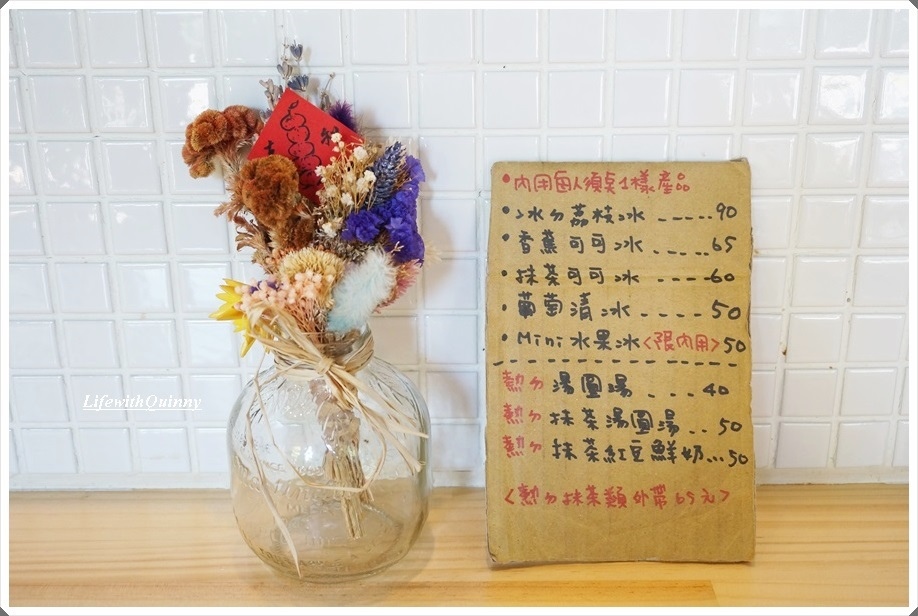 LifewithQuinny
•內用每人須点1樣產品
•冰ㄉ荔枝冰-----90
•香蕉可可冰----65
•抹茶可可冰----60
•葡萄清冰----50
•Mini水果冰<限內用>50
熱ㄉ 湯圓湯----40
熱ㄉ 抹茶湯圓湯..50
熱ㄉ 抹茶紅豆鮮奶...50
<熱ㄉ抹茶類外帶65元>